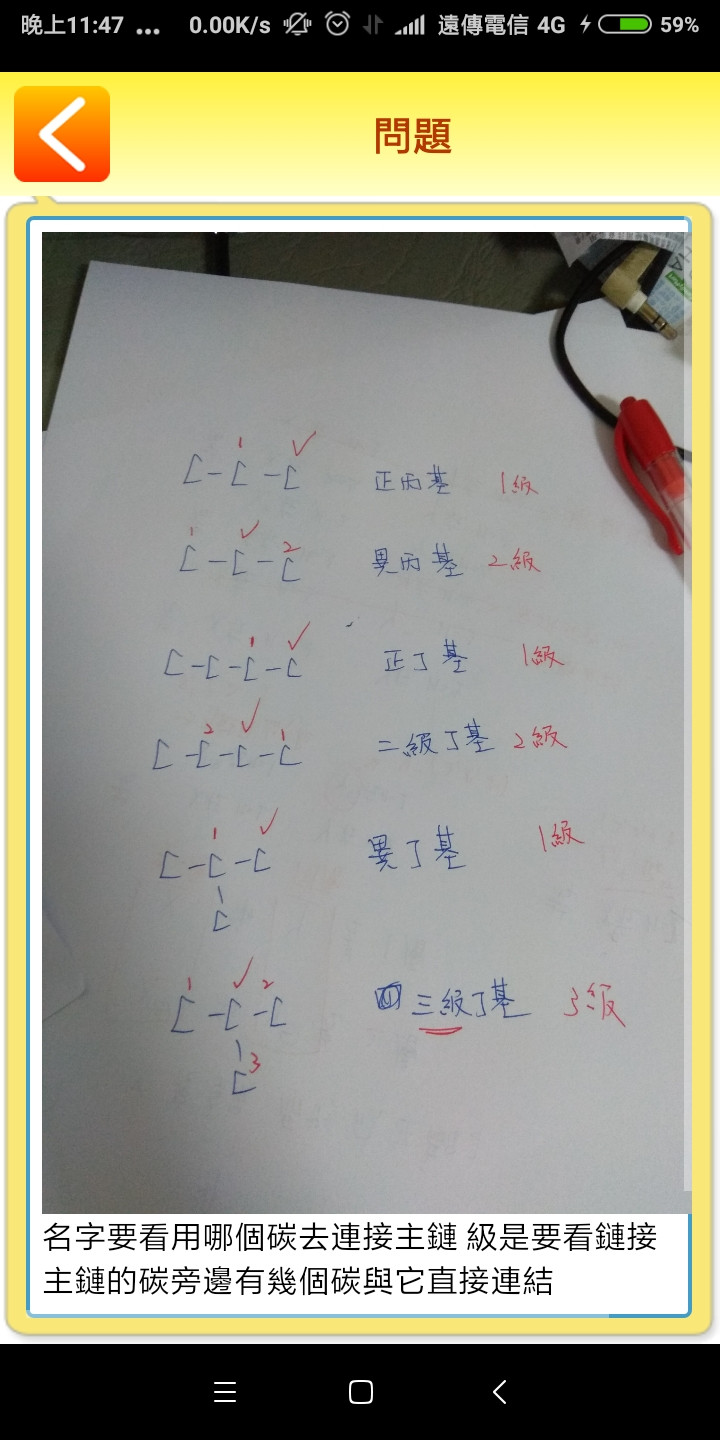 晚上11:47 ... 0.00K/s 遠傳電信 4G 59%
問題
1
C-C-C 正丙基 1級
1 2
C-C-C 異丙基 2級
1
C-C-C-C 正丁基 1級
2 1
C-C-C-C 二級丁基 2級
1
C-C-C 異丁基 1級
C
1 2
C-C-C 三級丁基 3級
3
C
名字要看用哪個碳去連接主鏈 級是要看鏈接
主鏈的碳旁邊有幾個碳與它直接連結